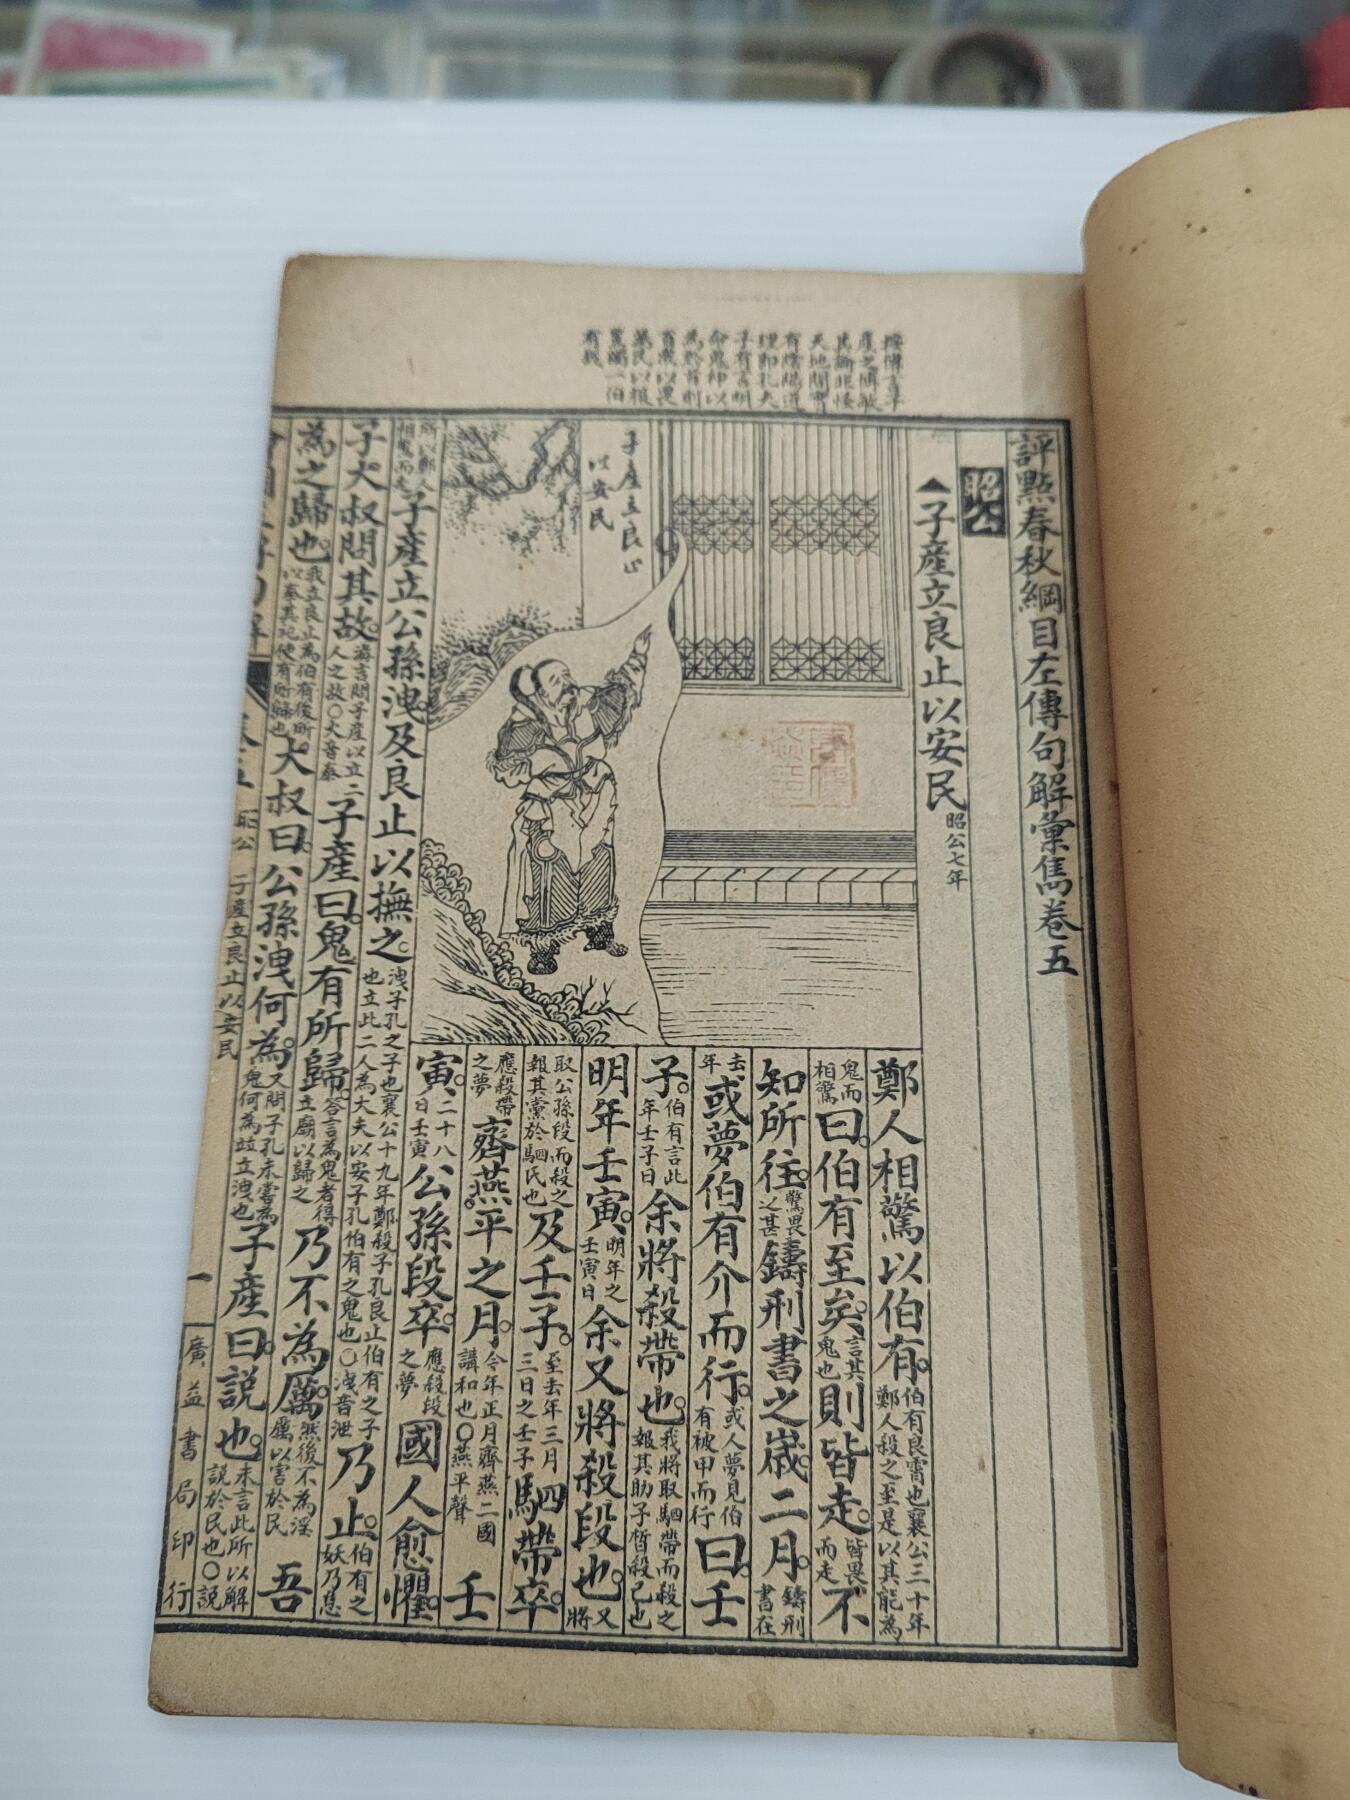 評點春秋綱目左傳句解彙雋卷五
昭公
▲子產立良止以安民 昭公七年
子產立良止
以安民
鄭人相驚以伯有。伯有良霄也襄公三十年鄭人殺之至是以其能為
鬼而相驚曰。伯有至矣。言其鬼也則皆走。皆畏而走不
知所往。驚畏之甚鑄刑書之歲。二月。鑄刑書在
去年或夢伯有介而行。或人夢見伯有被甲而行曰。壬
子。伯有言此年壬子日余將殺帶也。我將取駟帶而殺之報其助子皙殺己也
明年壬寅。明年之壬寅日余又將殺段也。又將
取公孫段而殺之報其黨於駟氏也及壬子。至去年三月三日之壬子駟帶卒。
應殺帶之夢齊燕平之月。今年正月齊燕二國講和也〇燕平聲壬
寅。二十八日壬寅公孫段卒。應殺段之夢國人愈懼。
所以鄭人相鬼而走子產立公孫洩。及良止以撫之。洩子孔之子也襄公十九年鄭殺子孔良止伯有之子也立此二人為大夫以安子孔伯有之鬼也〇洩音泄乃止。伯有之妖乃息
子大叔問其故。游吉問子產以立二人之故〇大音泰子產曰。鬼有所歸。答言為鬼者得立廟以歸之乃不為厲。然後不為淫厲以害於民吾
為之歸也。我立良止為伯有後所以奉其祀使有所歸也大叔曰。公孫洩何為。又問子孔未嘗為鬼何為竝立洩也子產曰。說也。未言此所以解說於民也〇說
卷五 昭公 子產立良止以安民 一 廣益書局印行